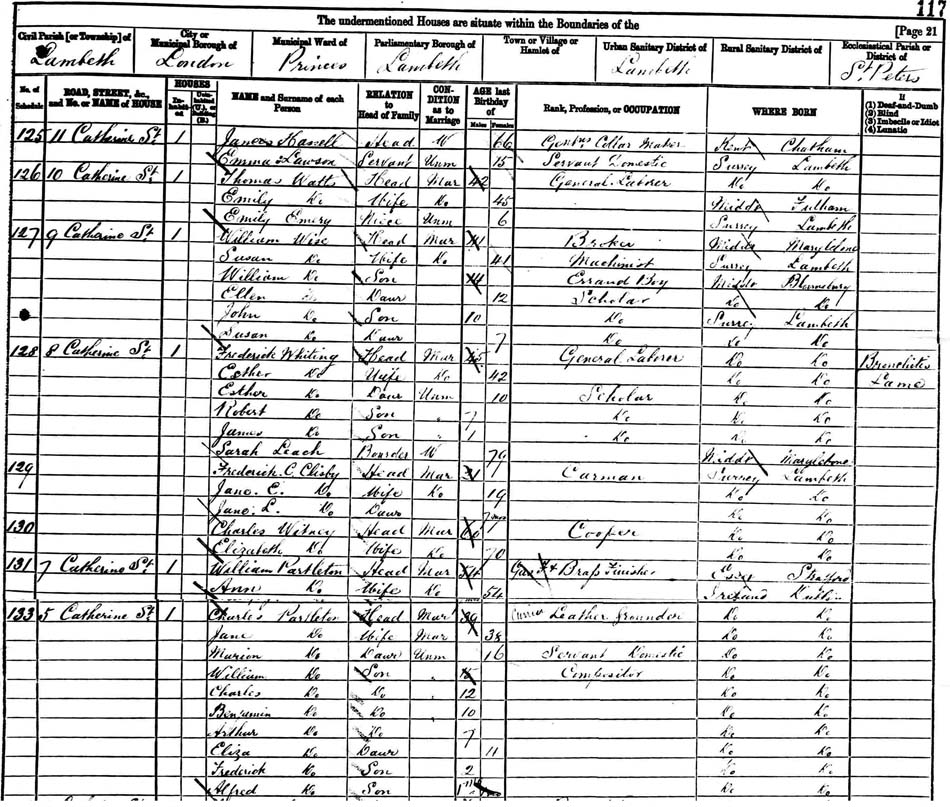 117
The undermentioned Houses are situate within the Boundaries of the
[Page 21
Civil Parish [or Township] of
City or Municipal Borough of
Municipal Ward of
Parliamentary Borough of
Town or Village or Hamlet of
Urban Sanitary District of
Rural Sanitary District of
Ecclesiastical Parish or District of
Lambeth London Princes Lambeth Lambeth St Peters
No. of Schedule
ROAD, STREET, &c., and No. or NAME of HOUSE
HOUSES
Inhabited
Uninhabited (U.), or Building (B.)
NAME and Surname of each Person
RELATION to Head of Family
CONDITION as to Marriage
AGE last Birthday of
Males Females
Rank, Profession, or OCCUPATION
WHERE BORN
If
(1) Deaf-and-Dumb
(2) Blind
(3) Imbecile or Idiot
(4) Lunatic
125 11 Catherine St 1 Hassell Head W 66 Collar Maker Kent Chatham
Emma Lawson Servant Unm 15 Servant Domestic Surrey Lambeth
126 10 Catherine St 1 Thomas Watts Head Mar 42 General Laborer Do Do
Emily Do Wife Do 45 Middx Fulham
Emily Emery Niece Unm 6 Surrey Lambeth
127 9 Catherine St 1 William Wise Head Mar 41 Broker Middx Marylebone
Susan Do Wife Do 41 Machinist Surrey Lambeth
William Do Son 14 Errand Boy Middx Bloomsbury
Ellen Do Daur 12 Scholar Do Do
John Do Son 10 Do Surrey Lambeth
Susan Do Daur 7 Do Do Do
128 8 Catherine St 1 Frederick Whiting Head Mar 45 General Laborer Do Do Bronchitis
Esther Do Wife Do 42 Do Do Lame
Esther Do Daur Unm 10 Scholar Do Do
Robert Do Son 7 Do Do Do
James Do Son 1 Do Do Do
Sarah Leach Boarder W 79 Middx Marylebone
129 Frederick C. Clisby Head Mar 21 Carman Surrey Lambeth
Jane. E. Do Wife Do 19 Do Do
Jane. L. Do Daur 7 mos Do Do
130 Charles Witney Head Mar 60 Cooper Do Do
Elizabeth Do Wife Do 70 Do Do
131 7 Catherine St 1 William Partleton Head Mar 54 Gas Brass Finisher Essex Stratford
Ann Do Wife Do 54 Ireland
133 5 Catherine St 1 Charles Partleton Head Mar 39 Currier Leather Grounder Do Do
Jane Do Wife Mar 38 Do Do
Marion Do Daur Unm 16 Servant Domestic Do Do
William Do Son 15 Compositor Do Do
Charles Do Do 12 Do Do
Benjamin Do Do 10 Do Do
Arthur Do Do 7 Do Do
Eliza Do Daur 11 Do Do
Frederick Do Son 2 Do Do
Alfred Do Son Do Do